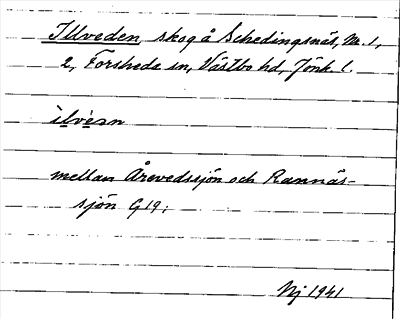 Illveden, skog å Schedingsnäs, Nr. 1,
2, Forsheda sn, Västbo hd, Jönk. l.
ìlvèan
mellan Årevedssjön och Rannäs-
sjön G19;
Nj 1941